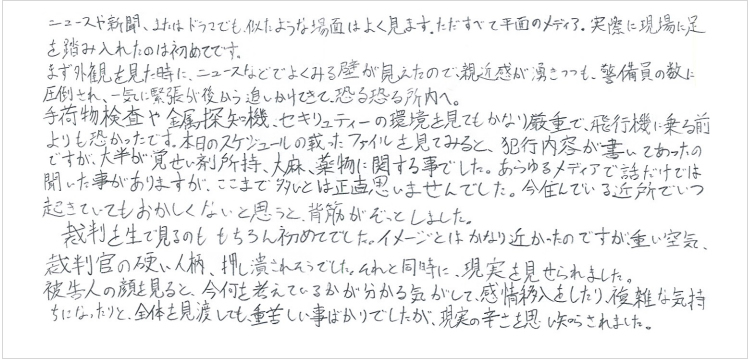 ニュースや新聞、またはドラマでも似たような場面はよく見ます。ただすべて平面のメディア。実際に現場に足
を踏み入れたのは初めてです。
まず外観を見た時に、ニュースなどでよくみる壁が見えたので、親近感が湧きつつも、警備員の数に
圧倒され、一気に緊張が後から追いかけてきて、恐る恐る所内へ。
手荷物検査や金属探知機、セキュリティーの環境を見てもかなり厳重で、飛行機に乗る前
よりも恐かったです。本日のスケジュールの載ったファイルを見てみると、犯行内容が書いてあったの
ですが、大半が覚せい剤所持、大麻、薬物に関する事でした。あらゆるメディアで話だけでは
聞いた事がありますが、ここまで多いとは正直思いませんでした。今住んでいる近所でいつ
起きていてもおかしくないと思うと、背筋がぞっとしました。
裁判を生で見るのももちろん初めてでした。イメージとはかなり近かったのですが、重い空気、
裁判官の硬い人柄、押し潰されそうでした。それと同時に、現実を見せられました。
被告人の顔を見ると、今何を考えているかが分かる気がして、感情移入をしたり、複雑な気持
ちになったりと、全体を見渡しても、重苦しい事ばかりでしたが、現実の辛さを思い知らされました。